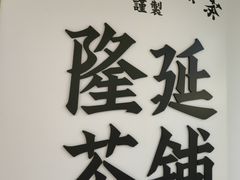 謹製
延隆
舖茶